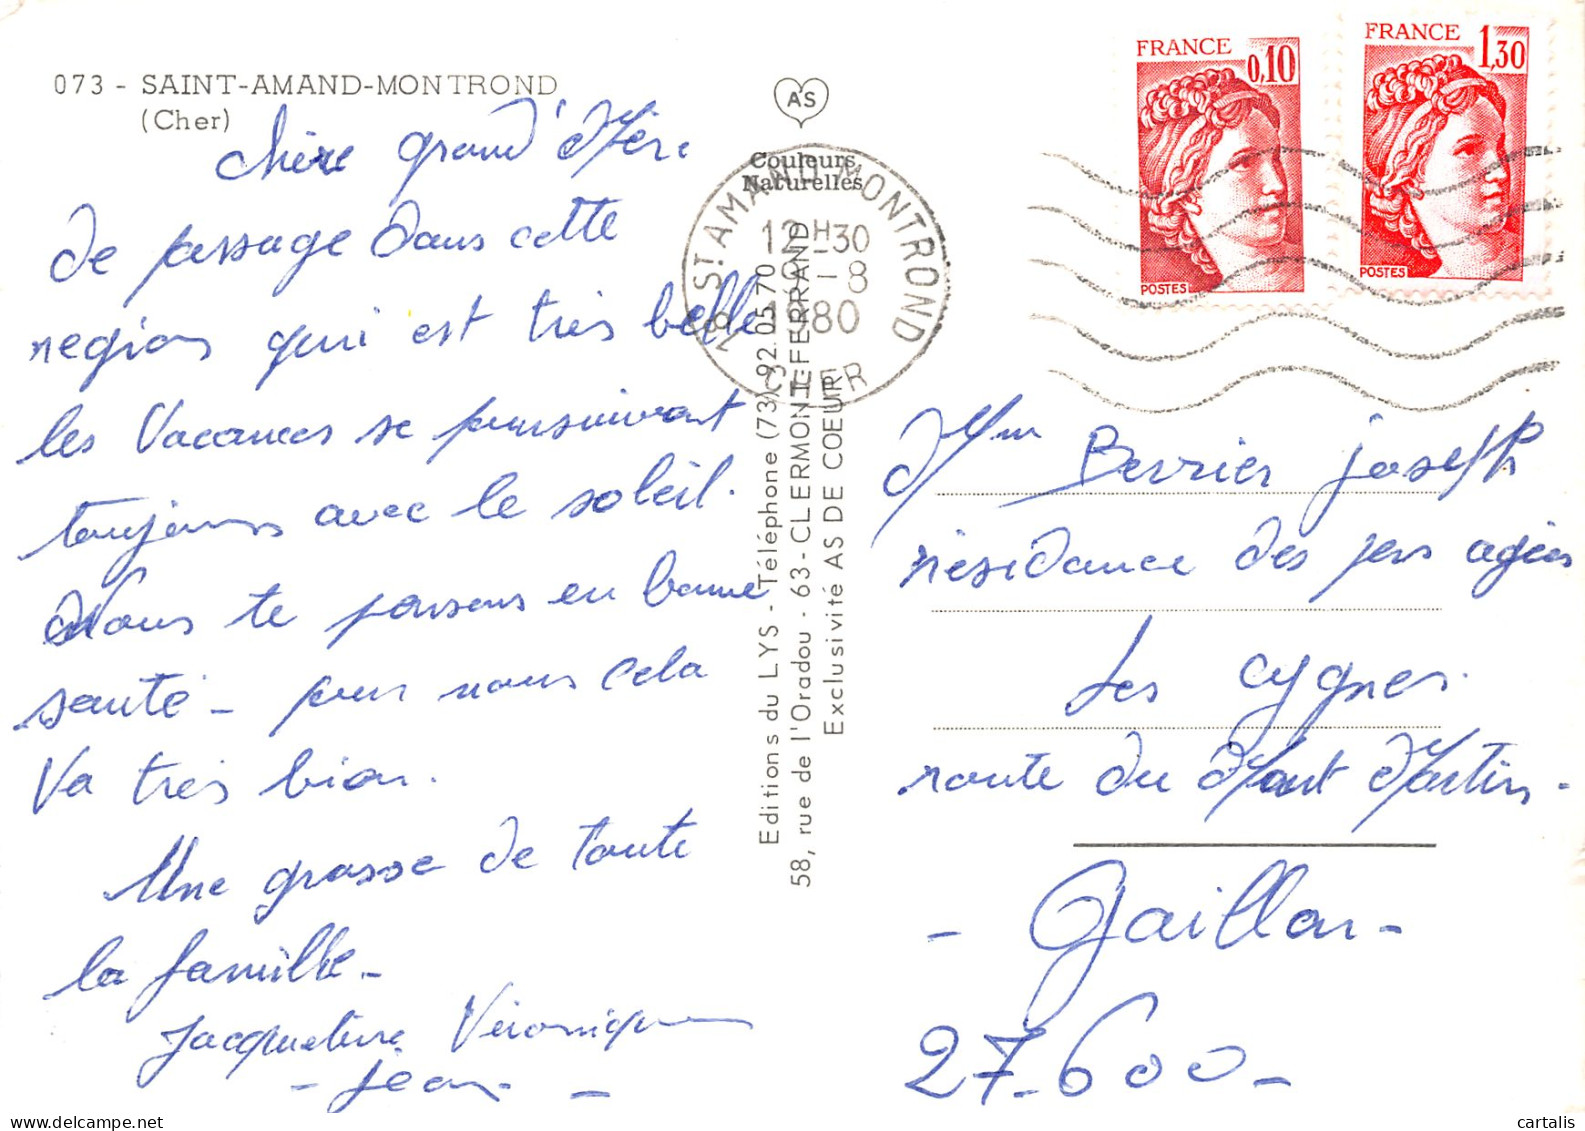 073 - SAINT-AMAND-MONTROND
(Cher)
chère grand'Mère
de passage dans cette
region qui est très belle
les Vacances se poursuivent
toujours avec le soleil.
Nous te pensons en bonne
santé - pour nous cela
Va très bien.
Une grosse de toute
la famille -
Jacqueline Véronique
- Jean -
AS
Couleurs
Naturelles
18 ST AMAND MONTROND
12H30
1-8
1980
CHER
Editions du LYS - Téléphone (73) 92.05.70
58, rue de l'Oradou - 63 - CLERMONT-FERRAND
Exclusivité AS DE COEUR
FRANCE
0,10
POSTES
FRANCE
1,30
POSTES
Mme Berrier joseph
résidance des pers agées
Les cygnes.
route du Mont Martin -
- Gaillon -
27-600 -
© cartalis
Delcampe.net